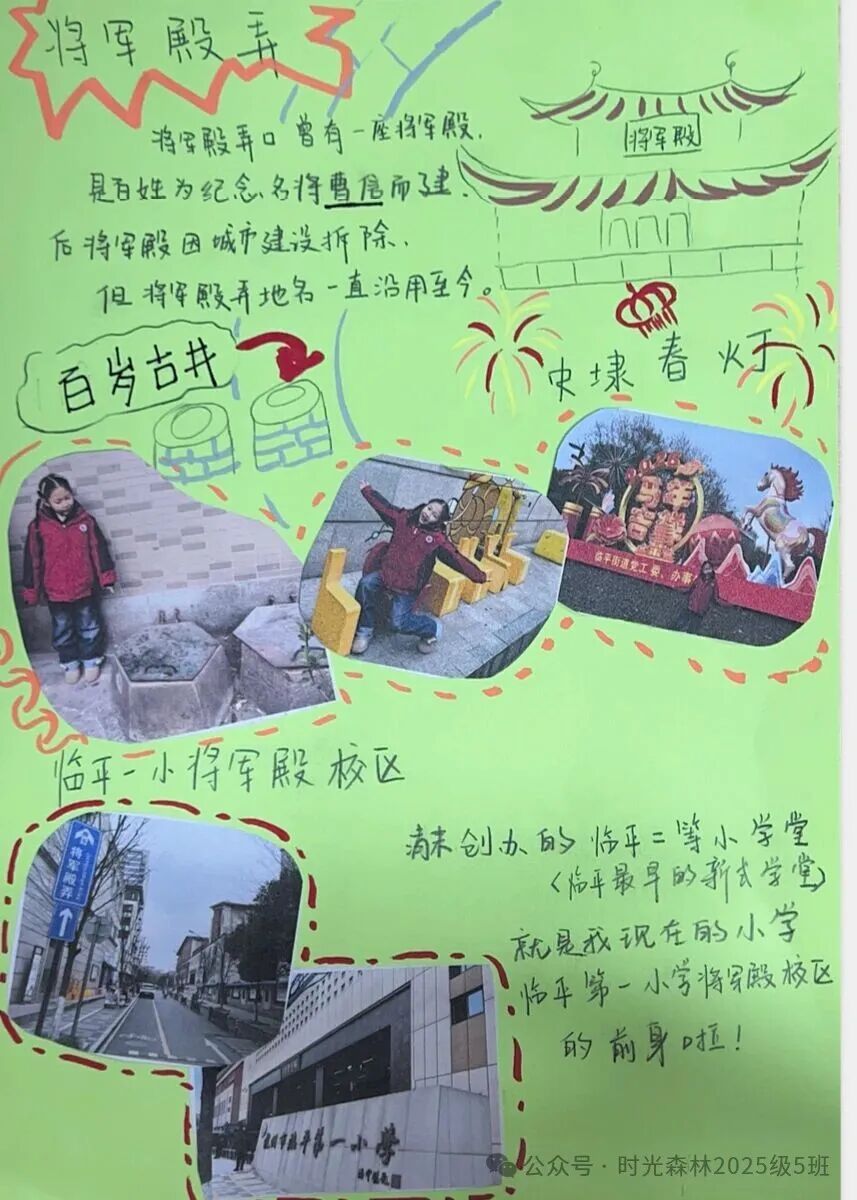 将军殿弄
将军殿弄口曾有一座将军殿，
是百姓为纪念名将曹信而建，
后将军殿因城市建设拆除，
但将军殿弄地名一直沿用至今。
将军殿
百岁古井
史埭春灯
2026
马年
吉祥
临平街道党工委、办事
临平一小将军殿校区
将军殿弄
清末创办的临平二等小学堂
（临平最早的新式学堂）
就是我现在的小学
临平第一小学将军殿校区
的前身啦！
杭州市临平第一小学
公众号·时光森林2025级5班